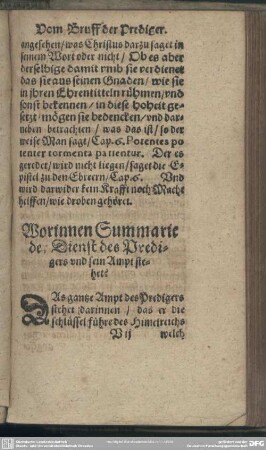 Vom Bruff der Prediger.
angesehen / was Christus darzu saget in
seinem Wort oder nicht / Ob es aber
derselbige damit vmb sie verdienet
das sie aus seinen Gnaden / wie sie
in jhren Ehrentitteln rühmen / vnd
sonst bekennen / in diese hoheit ge-
setzt / mögen sie bedencken / vnd dar-
neben betrachten / was das ist / so der
weise Man sagt / Cap. 6. Potentes po
tenter tormenta patientur. Der es
geredet / wird nicht liegen / saget die E-
pistel zu den Ebreern / Cap. 6. Vnd
wird darwider kein Krafft noch Macht
helffen / wie droben gehöret.
Worinnen Summarie
der Dienst des Predi-
gers vnd sein Ampt ste-
het?
DAs gantze Ampt des Predigers
stehet darinnen / das er die
schlüssel führe des Himelreichs
V ij welch